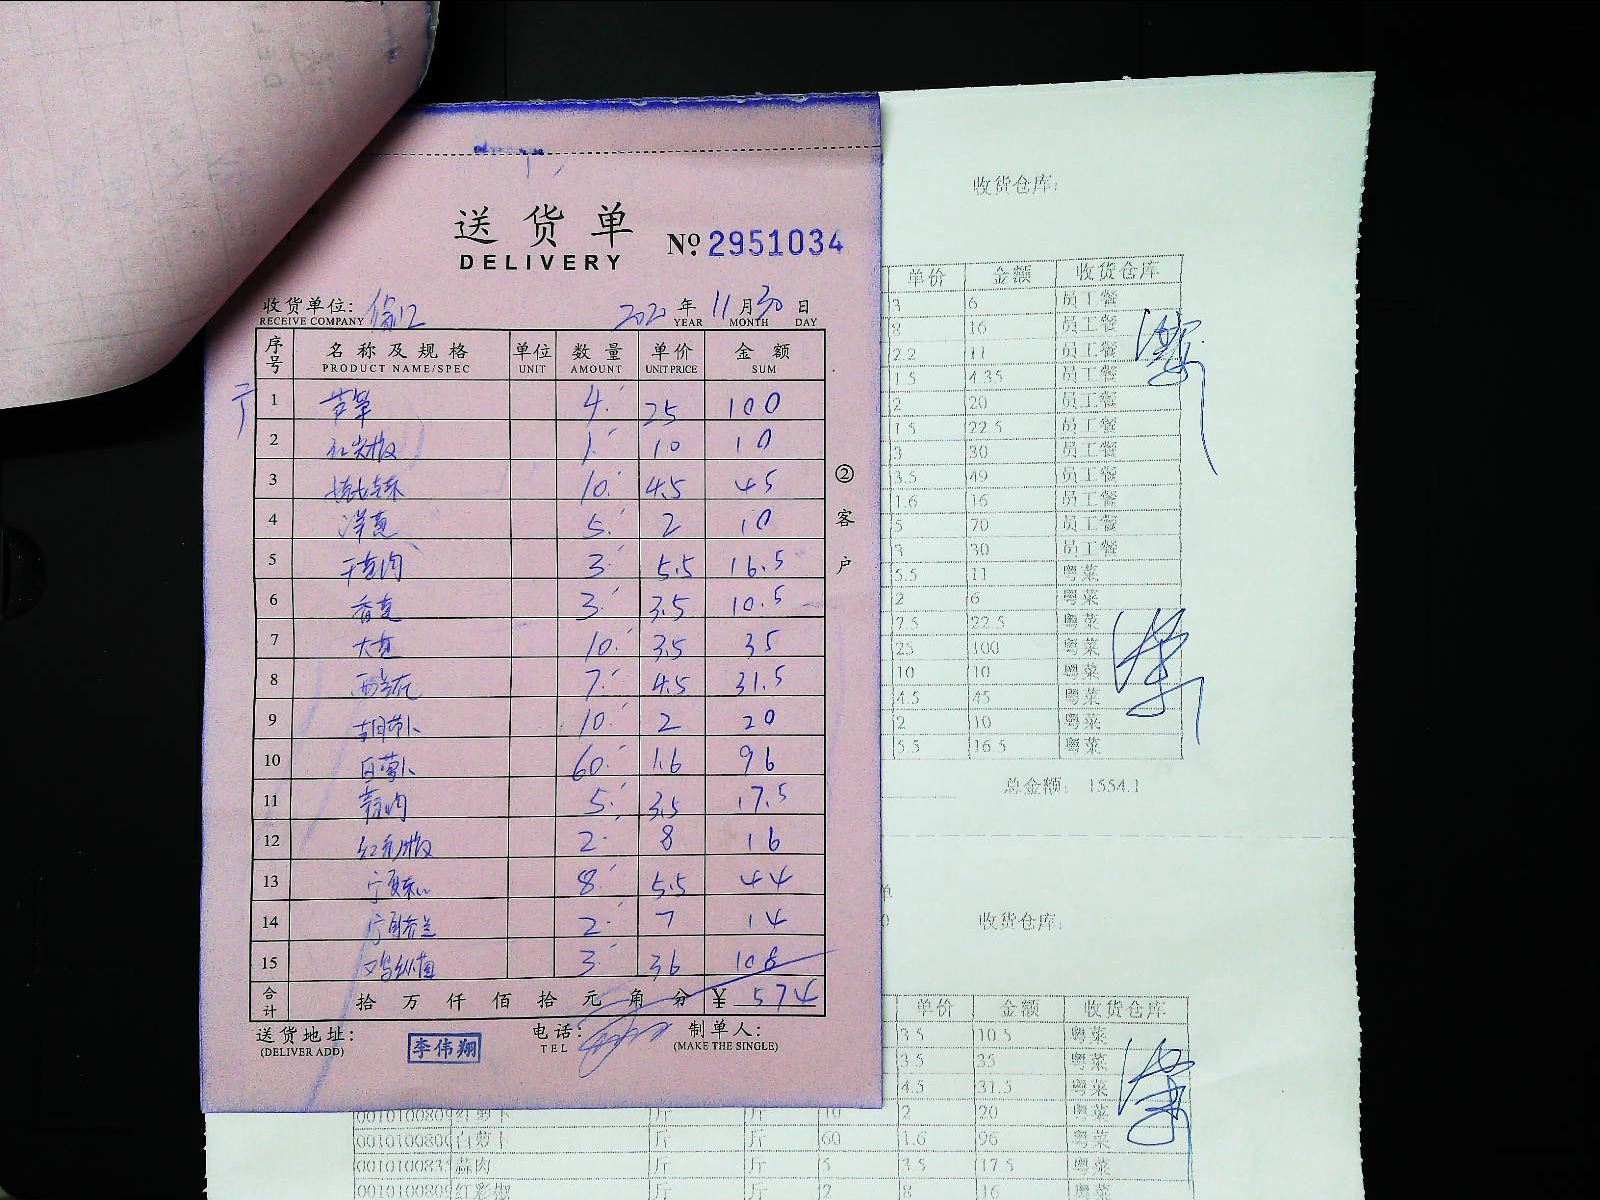 送货单
DELIVERY
No. 2951034
收货单位:
RECEIVE COMPANY
2020 年 11 月 30 日
YEAR MONTH DAY
序号 名称及规格 单位 数量 单价 金额
PRODUCT NAME/SPEC UNIT AMOUNT UNIT PRICE SUM
1 芦笋 4 25 100
2 红尖椒 1 10 10
3 10 4.5 45
4 洋葱 5 2 10
5 干葱肉 3 5.5 16.5
6 香芹 3 3.5 10.5
7 大葱 10 3.5 35
8 西兰花 7 4.5 31.5
9 胡萝卜 10 2 20
10 白萝卜 60 1.6 96
11 蒜肉 5 3.5 17.5
12 红彩椒 2 8 16
13 宁夏菜心 8 5.5 44
14 2 7 14
15 鸡枞菌 3 36 108
合计 拾 万 仟 佰 拾 元 角 分 ¥ 574
送货地址: 电话: 制单人:
(DELIVER ADD) TEL (MAKE THE SINGLE)
李伟翔
②客户
收货仓库:
单价 金额 收货仓库
3 6 员工餐
16 员工餐
2.2 11 员工餐
1.5 4.35 员工餐
2 20 员工餐
1.5 22.5 员工餐
3 30 员工餐
3.5 49 员工餐
1.6 16 员工餐
5 70 员工餐
3 30 员工餐
5.5 11 粤菜
2 6 粤菜
22.5 粤菜
25 100 粤菜
10 10 粤菜
4.5 45 粤菜
2 10 粤菜
5.5 16.5 粤菜
总金额: 1554.1
收货仓库:
单价 金额 收货仓库
3.5 10.5 粤菜
3.5 35 粤菜
4.5 31.5 粤菜
2 20 粤菜
白萝卜 斤 斤 60 1.6 96 粤菜
蒜肉 斤 斤 5 3.5 17.5 粤菜
红彩椒 斤 斤 2 8 16 粤菜